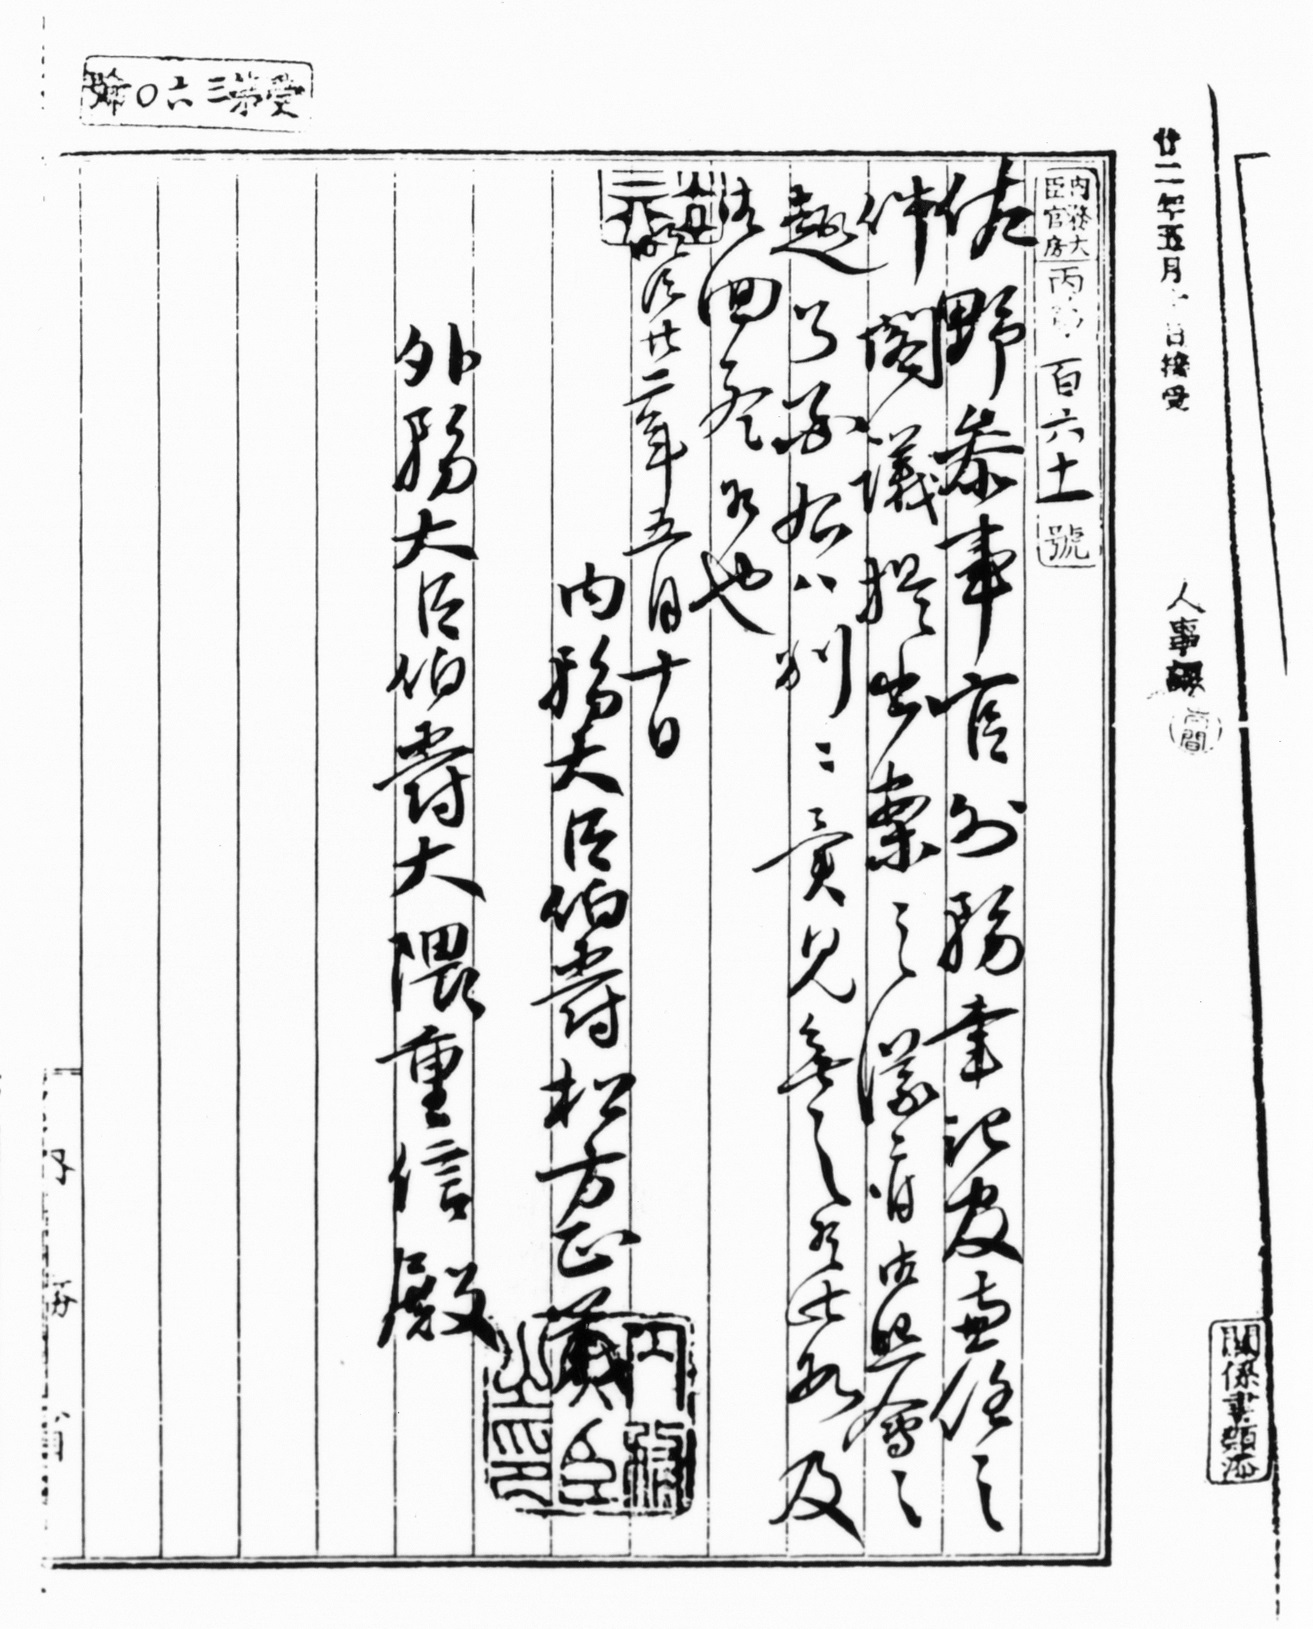 廿二年五月十日接受
人事課
内務大臣官房丙第百六十一號
佐野参事官外務書記官兼任之
件閣議提出案之儀ニ付御照會之
趣了承右ハ別ニ意見無之候此段及
御回答候也
明治廿二年五月十日
内務大臣伯爵松方正義
外務大臣伯爵大隈重信殿
受第三六〇號
關係書類添